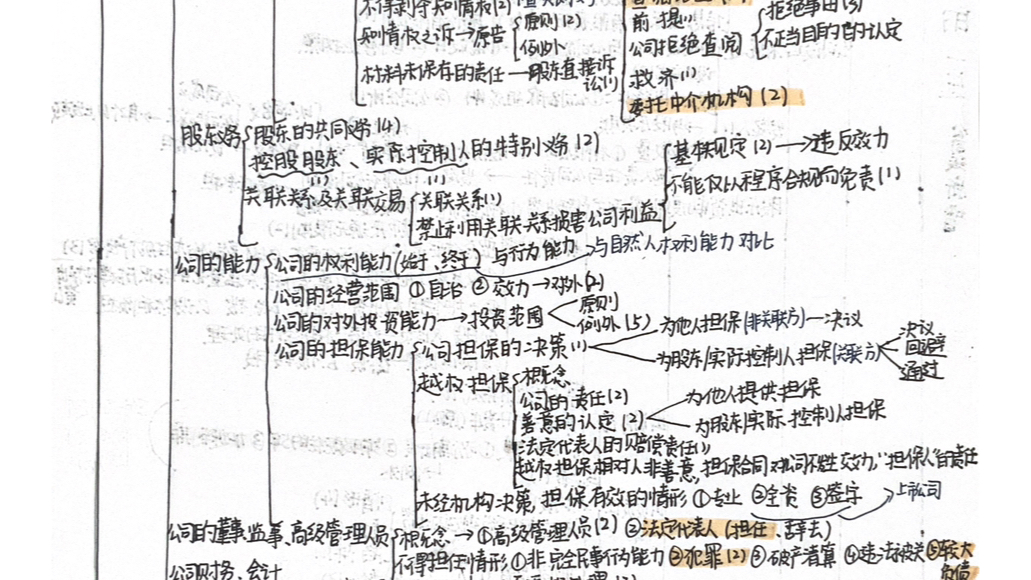 不得剥夺知情权(2)
前提(1)
拒绝事由(3)
知情权之诉→原告
原则(2)
例外
公司拒绝查阅
不正当目的的认定
材料未保存的责任—股东直接诉讼(1)
救济(1)
委托中介机构(2)
股东义务
股东的共同义务(4)
控股股东、实际控制人的特别义务(2)
(1) (1)
基本规定(2)→违反效力
不能仅以程序合规而免责(1)
关联关系及关联交易
关联关系(1)
禁止利用关联关系损害公司利益
公司的能力
公司的权利能力(始于、终于)与行为能力
与自然人权利能力对比
公司的经营范围 ①自治 ②效力→对外(2)
公司的对外投资能力→投资范围
原则
例外(5)
公司的担保能力
公司担保的决策(1)
为他人担保(非关联方)—决议
为股东/实际控制人担保(关联方)
决议
回避
通过
越权担保
概念
公司的责任(2)
善意的认定(2)
为他人提供担保
为股东/实际控制人担保
法定代表人的赔偿责任(1)
越权担保相对人非善意,担保合同对公司不发生效力,"担保人"的责任
未经机构决策,担保有效的情形 ①专业 ②全资 ③签字
上市公司
公司的董事监事、高级管理人员
概念→①高级管理人员(2) ②法定代表人(担任、辞去)
不得担任情形 ①非完全民事行为能力 ②犯罪(2) ③破产清算 ④违法被关 ⑤较大负债
公司财务、会计